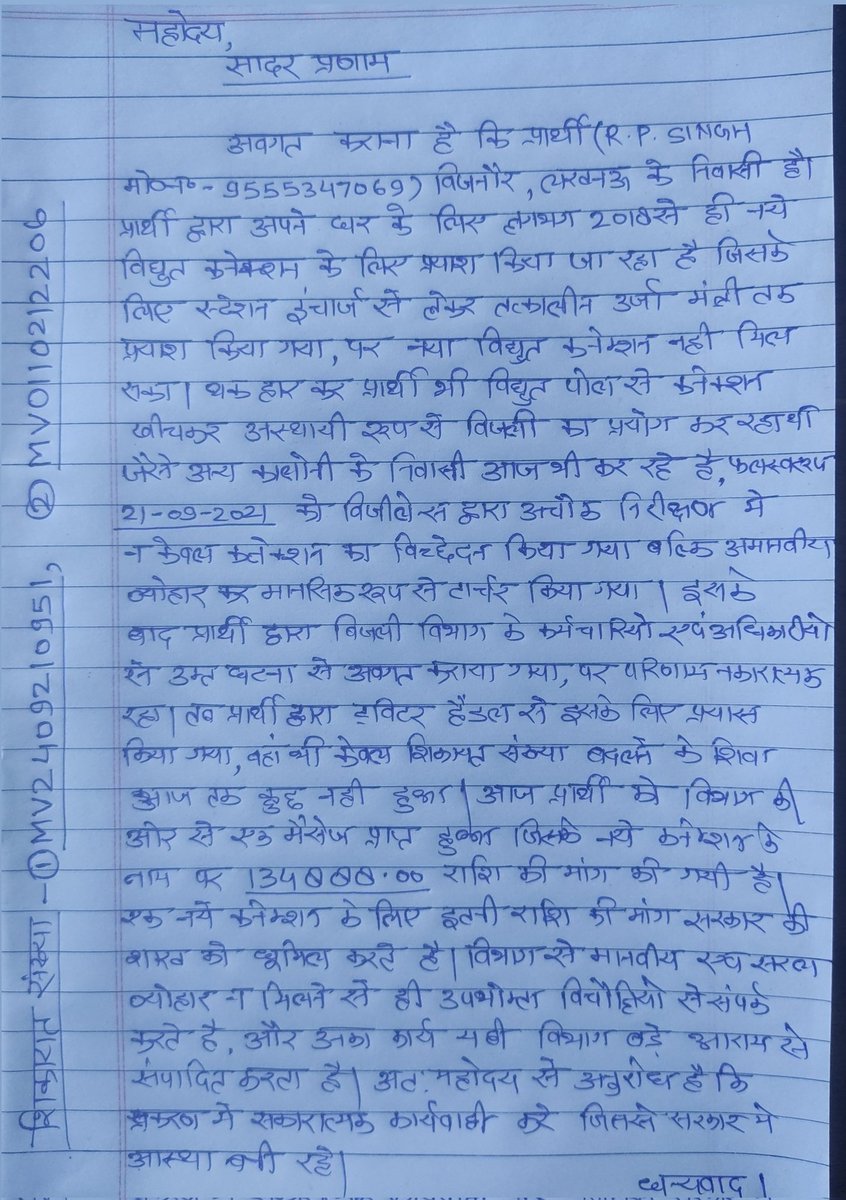 महोदय,
सादर प्रणाम
अवगत कराना है कि प्रार्थी (R.P. SINGH
मो०न०- 9555347069) बिजनौर, लखनऊ के निवासी है।
प्रार्थी द्वारा अपने घर के लिए लगभग 2018 से ही नये
विद्युत कनेक्शन के लिए प्रयाश किया जा रहा है जिसके
लिए स्टेशन इंचार्ज से लेकर तत्कालीन उर्जा मंत्री तक
प्रयाश किया गया, पर नया विद्युत कनेक्शन नही मिल
सका। थक हार कर प्रार्थी भी विद्युत पोल से कनेक्शन
खीचकर अस्थायी रूप से बिजली का प्रयोग कर रहा था
जैसे अन्य कालोनी के निवासी आज भी कर रहे है, फलस्वरूप
21-09-2021 को विजीलेन्स द्वारा अचौक निरीक्षण मे
न केवल कनेक्शन का विच्छेदन किया गया बल्कि अमानवीय
व्योहार कर मानसिक रूप से टार्चर किया गया। इसके
बाद प्रार्थी द्वारा बिजली विभाग के कर्मचारियो एवं अधिकारीयो
से उक्त घटना से अवगत कराया गया, पर परिणाम नकारात्मक
रहा। तब प्रार्थी द्वारा ट्विटर हैंडल से इसके लिए प्रयास
किया गया, वहां भी केवल शिकायत संख्या बदलने के शिवा
आज तक कुछ नही हुआ। आज प्रार्थी को विभाग की
ओर से एक मैसेज प्राप्त हुआ जिसके नये कनेक्शन के
नाम पर 134888.00 राशि की मांग की गयी है।
एक नये कनेक्शन के लिए इतनी राशि की मांग सरकार की
को धूमिल करते है। विभाग से मानवीय एव सरल
व्योहार न मिलने से ही उपभोक्ता बिचौलियो से संपर्क
करते है, और उनका कार्य यही विभाग बड़े आराम से
संपादित करता है। अतः महोदय से अनुरोध है कि
प्रकरण मे सकारात्मक कार्यवाही करे जिससे सरकार मे
आस्था बनी रहे।
धन्यवाद।
शिकायत संख्या - ① MV2409210951, ② MV0110212206